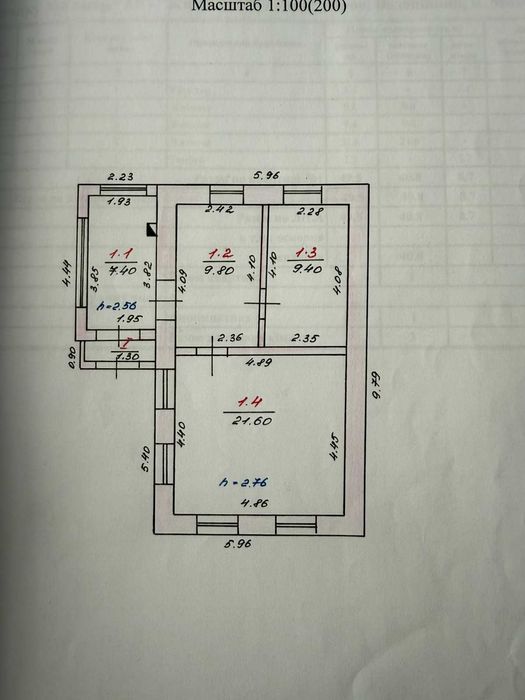 Масштаб 1:100(200)
2.23
5.96
1.93
2.42
2.28
4.44
3.85
1.1
7.40
3.82
4.09
1.2
9.80
4.10
4.10
1.3
9.40
4.08
h=2.56
1.95
2.36
2.35
0.90
I
1.30
4.89
9.79
1.4
21.60
4.40
4.45
5.40
h=2.76
4.86
5.96